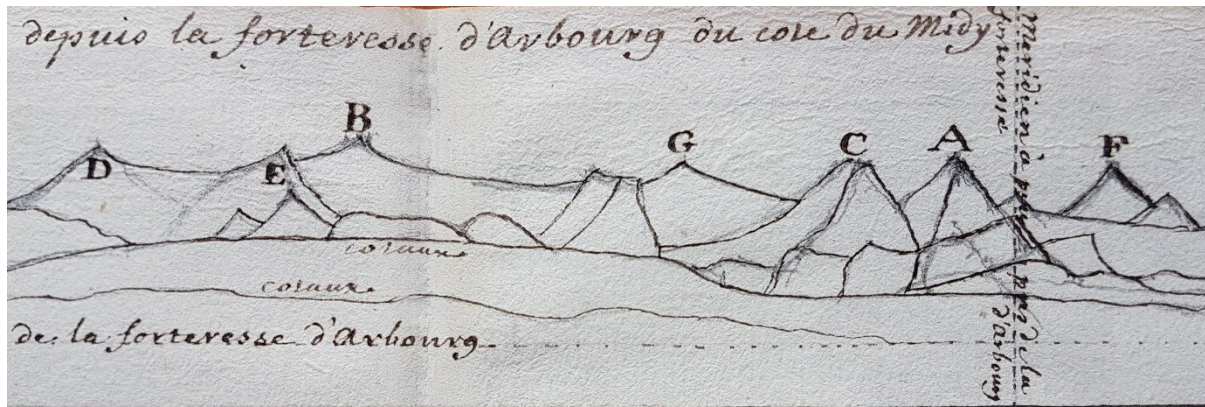 depuis la forteresse d'Arbourg du coté du Midy
B
G
C
A
F
D
E
coraux
coraux
de la forteresse d'Arbourg
Meridien à peu près de la
forteresse d'arbourg